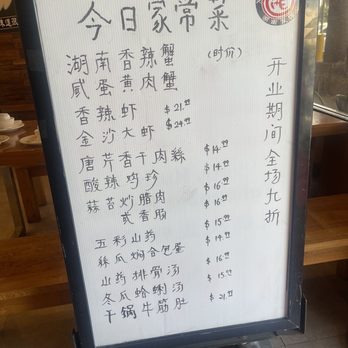 今日家常菜
湖南香辣蟹 (时价)
咸蛋黄肉蟹
香辣虾 $21.99
金沙大虾 $24.99
唐芹香干肉絲 $14.99
酸辣鸡珍 $14.99
蒜苔炒腊肉 $16.99
貳香脂 $16.99
五彩山药 $15.99
絲瓜焖合包蛋 $14.99
山药排骨汤 $16.99
冬瓜蛤蜊汤 $15.99
干锅牛筋肚 $21.99
开业期间全场九折